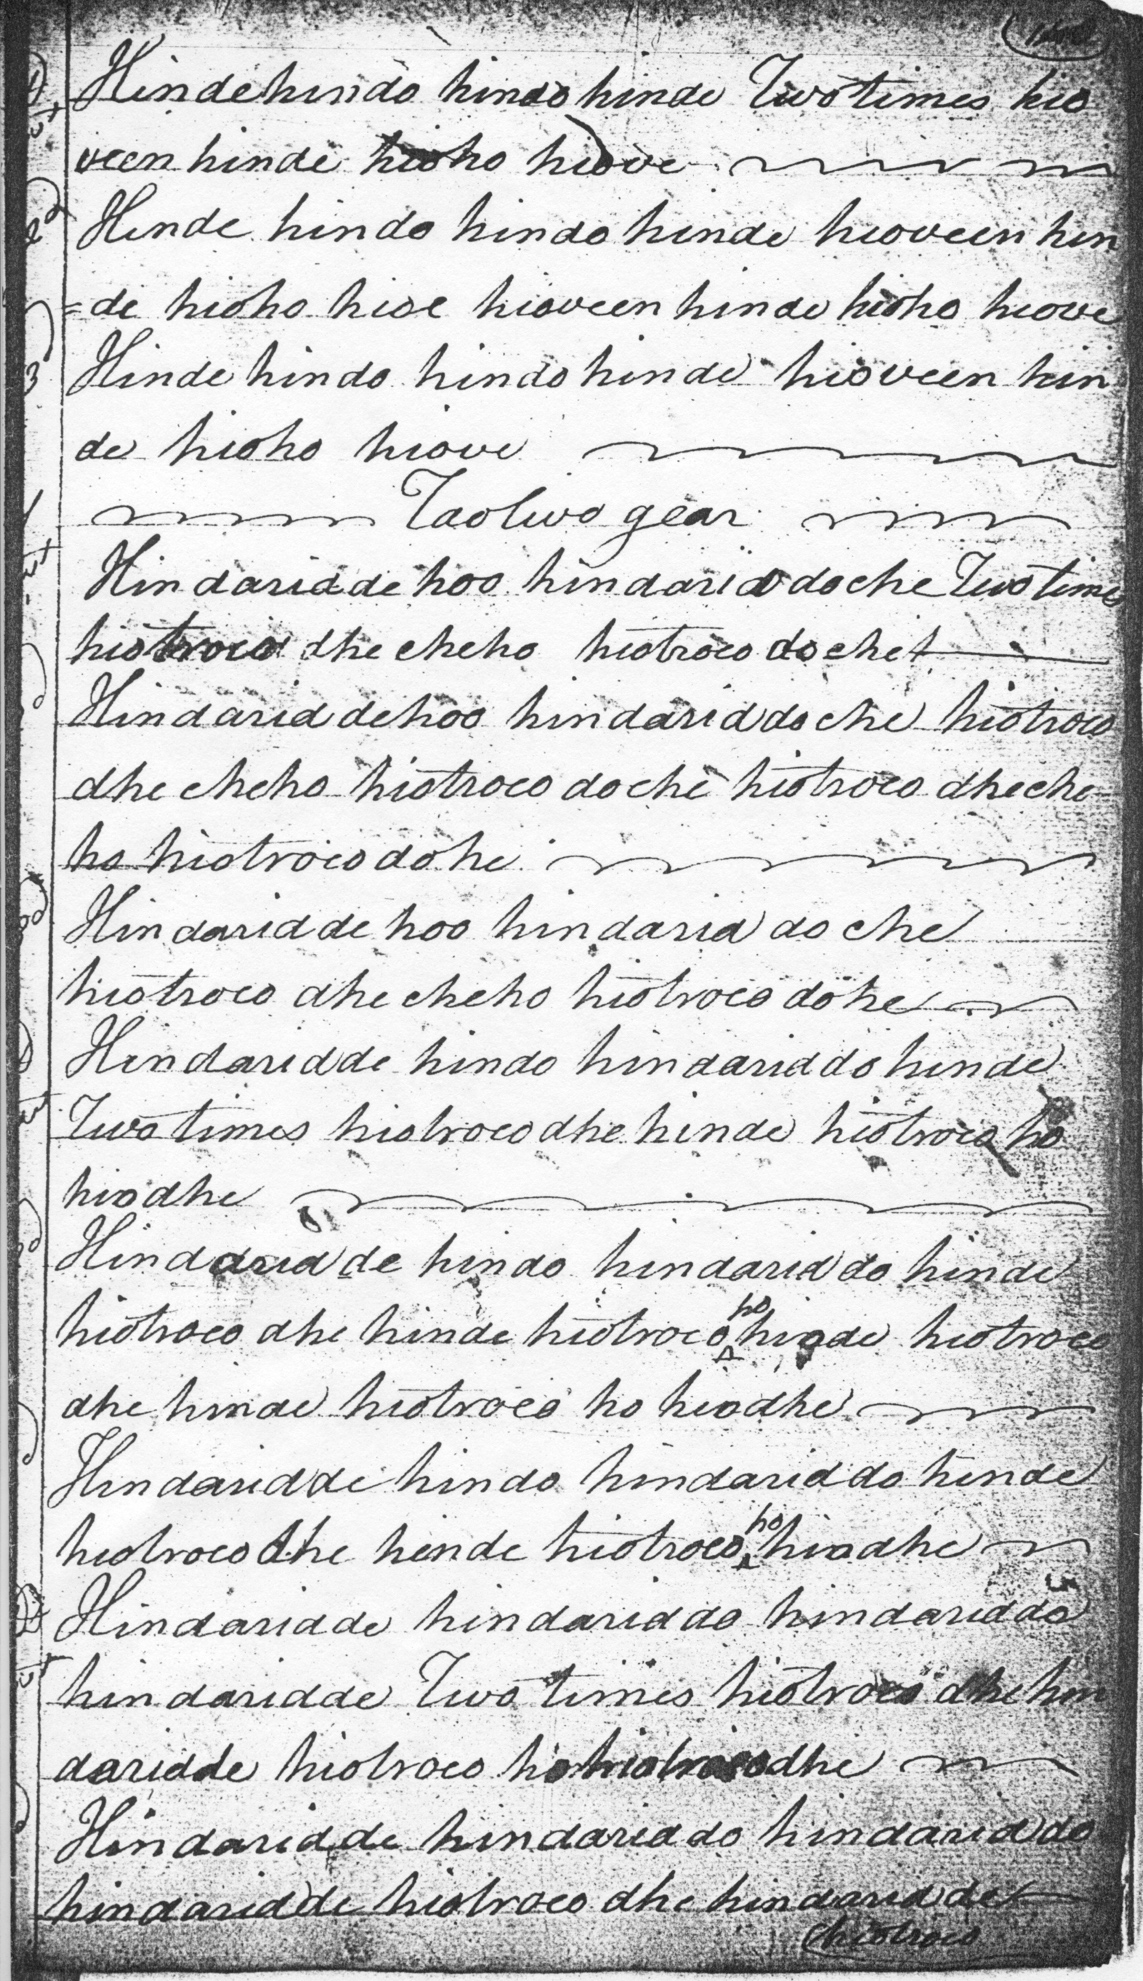 Hinde hindo hindo hinde Two times hio
veen hinde hioho hiove
Hinde hindo hindo hinde hioveen hin
=de hioho hioe hioveen hinde hioho hiove
Hinde hindo hindo hinde hioveen hin
de hioho hiove
Taolivo gear
Hindaridde hoo hindarid doche Two times
hiotroeo dhe cheho hiotroeo doche
Hindarid dehoo hindarid do che hiotroeo
dhe cheho hiotroeo do che hiotroeo dheche
ho hiotroeo dohe
Hindarid de hoo hindarid do che
hiotroeo dhe cheho hiotroeo dohe
Hindaridde hindo hindarid do hinde
Two times hiotroeo dhe hinde hiotroeo ho
hiodhe
Hindarid de hindo hindarid do hinde
hiotroeo dhe hinde hiotroeo ho hiode hiotroeo
dhe hinde hiotroeo ho hiodhe
Hindaridde hindo hindarid do hinde
hiotroeo dhe hinde hiotroeo ho hiodhe
Hindaridde hindarid do hindarid do
hindaridde Two times hiotroeo dhe hin
daridde hiotroeo dhe
Hindaridde hindarid do hindarid do
hindaridde hiotroeo dhe hindarid de
hiotroeo